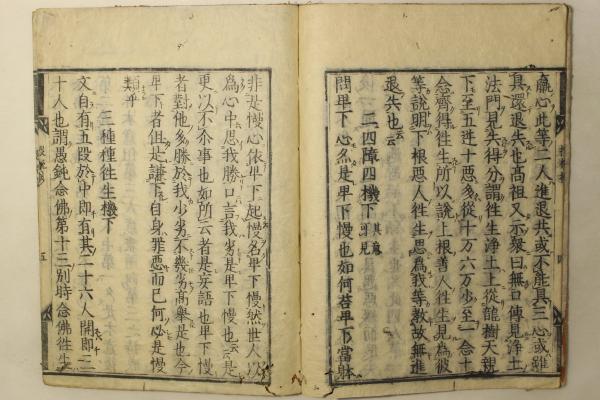 羸心此等二人進退共或不能具三心或雖
具還退失也高祖又示衆曰無口傳見淨土
法門見失得分謂往生淨土上從龍樹天親
下至五逆十惡多從十万六万少至一念十
念齊得往生所以説上根善人往生見為彼
等説明下根惡人往生思為我等教故無進
退失也云云
二四障四機下
問卑下心尓是卑下慢也如何答卑下當躰
非是慢心依卑下起慢名卑下慢然世人以
為心中思我勝口言我劣是卑下慢也云云是
更以不尓事也如所云者是妄語也卑下慢
者對他多勝於我少劣不幾劣高舉是也今
卑下者但是謙下自身罪惡而已何必是慢
類乎
三種種往生機下
文自有五段於中即有其二十六人開即二
十人也謂愚鈍念佛第十三別時念佛往生